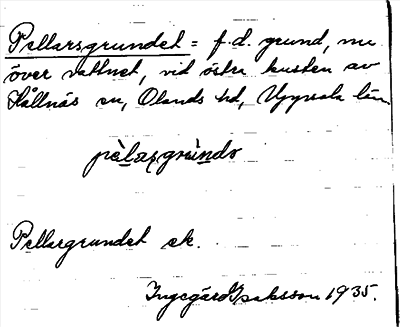 Pellarsgrundet = f.d. grund, nu
över vattnet, vid östra kusten av
Hållnäs sn, Olands hd, Uppsala län
pèlaʂgrùndə
Pellargrundet ek.
Ingegärd Isaksson 1935.